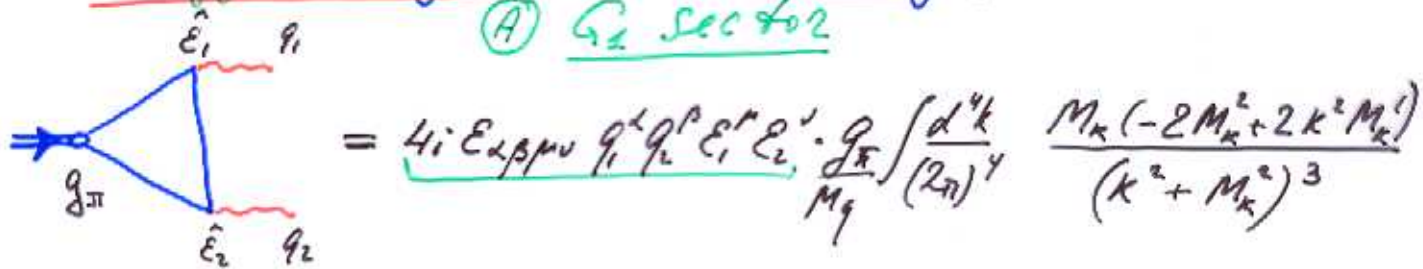 Ⓐ G₁ sector
ε̂₁ q₁
gπ = 4i ε_{αβμν} q₁^α q₂^β ε₁^μ ε₂^ν · g_π/M_q ∫ d⁴k/(2π)⁴ M_k(-2M_k²+2k²M_k')/(k²+M_k²)³
ε̂₂ q₂